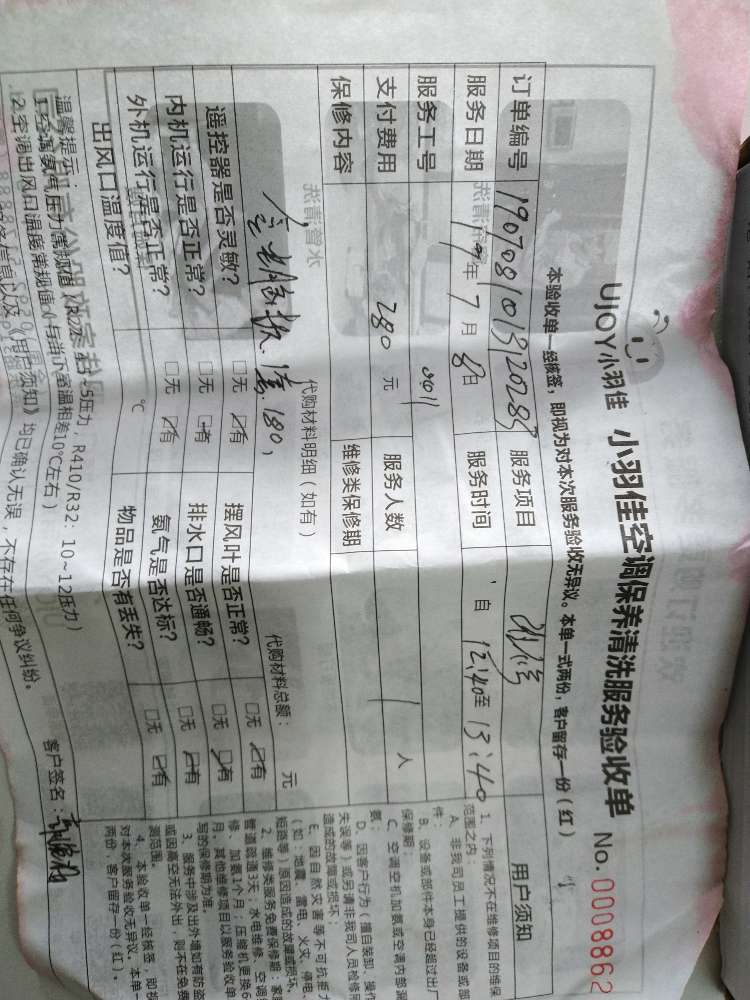 UJOY小羽佳 小羽佳空调保养清洗服务验收单 No.0008862
本验收单一经核签，即视为对本次服务验收无异议。本单一式两份，客户留存一份（红）
订单编号 服务项目
服务日期 年7月8日 服务时间 自12:40至13:40
服务工号 0011 服务人数 1人
支付费用 280元 维修类保修期
保修内容
代购材料明细（如有） 代购材料总额： 元
180
遥控器是否灵敏？ □无 ☑有 摆风叶是否正常？ □无 ☑有
内机运行是否正常？ □无 ☑有 排水口是否通畅？ □无 ☑有
外机运行是否正常？ □无 ☑有 氨气是否达标？ □无 ☑有
出风口温度值？ ℃ 物品是否有丢失？ □无 ☑有
温馨提示：
R410/R32：10~12压力）
2.空调出风口温度常规值（与当下室温相差10℃左右）
用户须知》均已确认无误，不存在任何争议纠纷。
客户签名：
用户须知
1、下列情况不在维修项目的维保
范围之内：
A、非我司员工提供的设备或部
件；
B、设备或部件本身已经超过出厂
保修期；
C、空调空机加氨或空调内部漏
氨；
D、因客户行为（擅自装卸、操作
失误等）或另请非我司人员检修所
造成的故障或损坏；
E、因自然灾害等不可抗重力
（如：地震、雷电、火灾、停电、
短路等）原因造成的故障或损坏。
2、维修类服务免费保修期：家
管道疏通3天；水电维修、空调
修、加氨1个月；压缩机更换6
月，其他维修项目以服务验收单
写的保修期为准。
3、服务中涉及出外墙如有防盗
或因高空无法外出，则不在免费
测范围。
4、本验收单一经核签，即视
对本次服务验收无异议。本单一
两份，客户留存一份（红）。